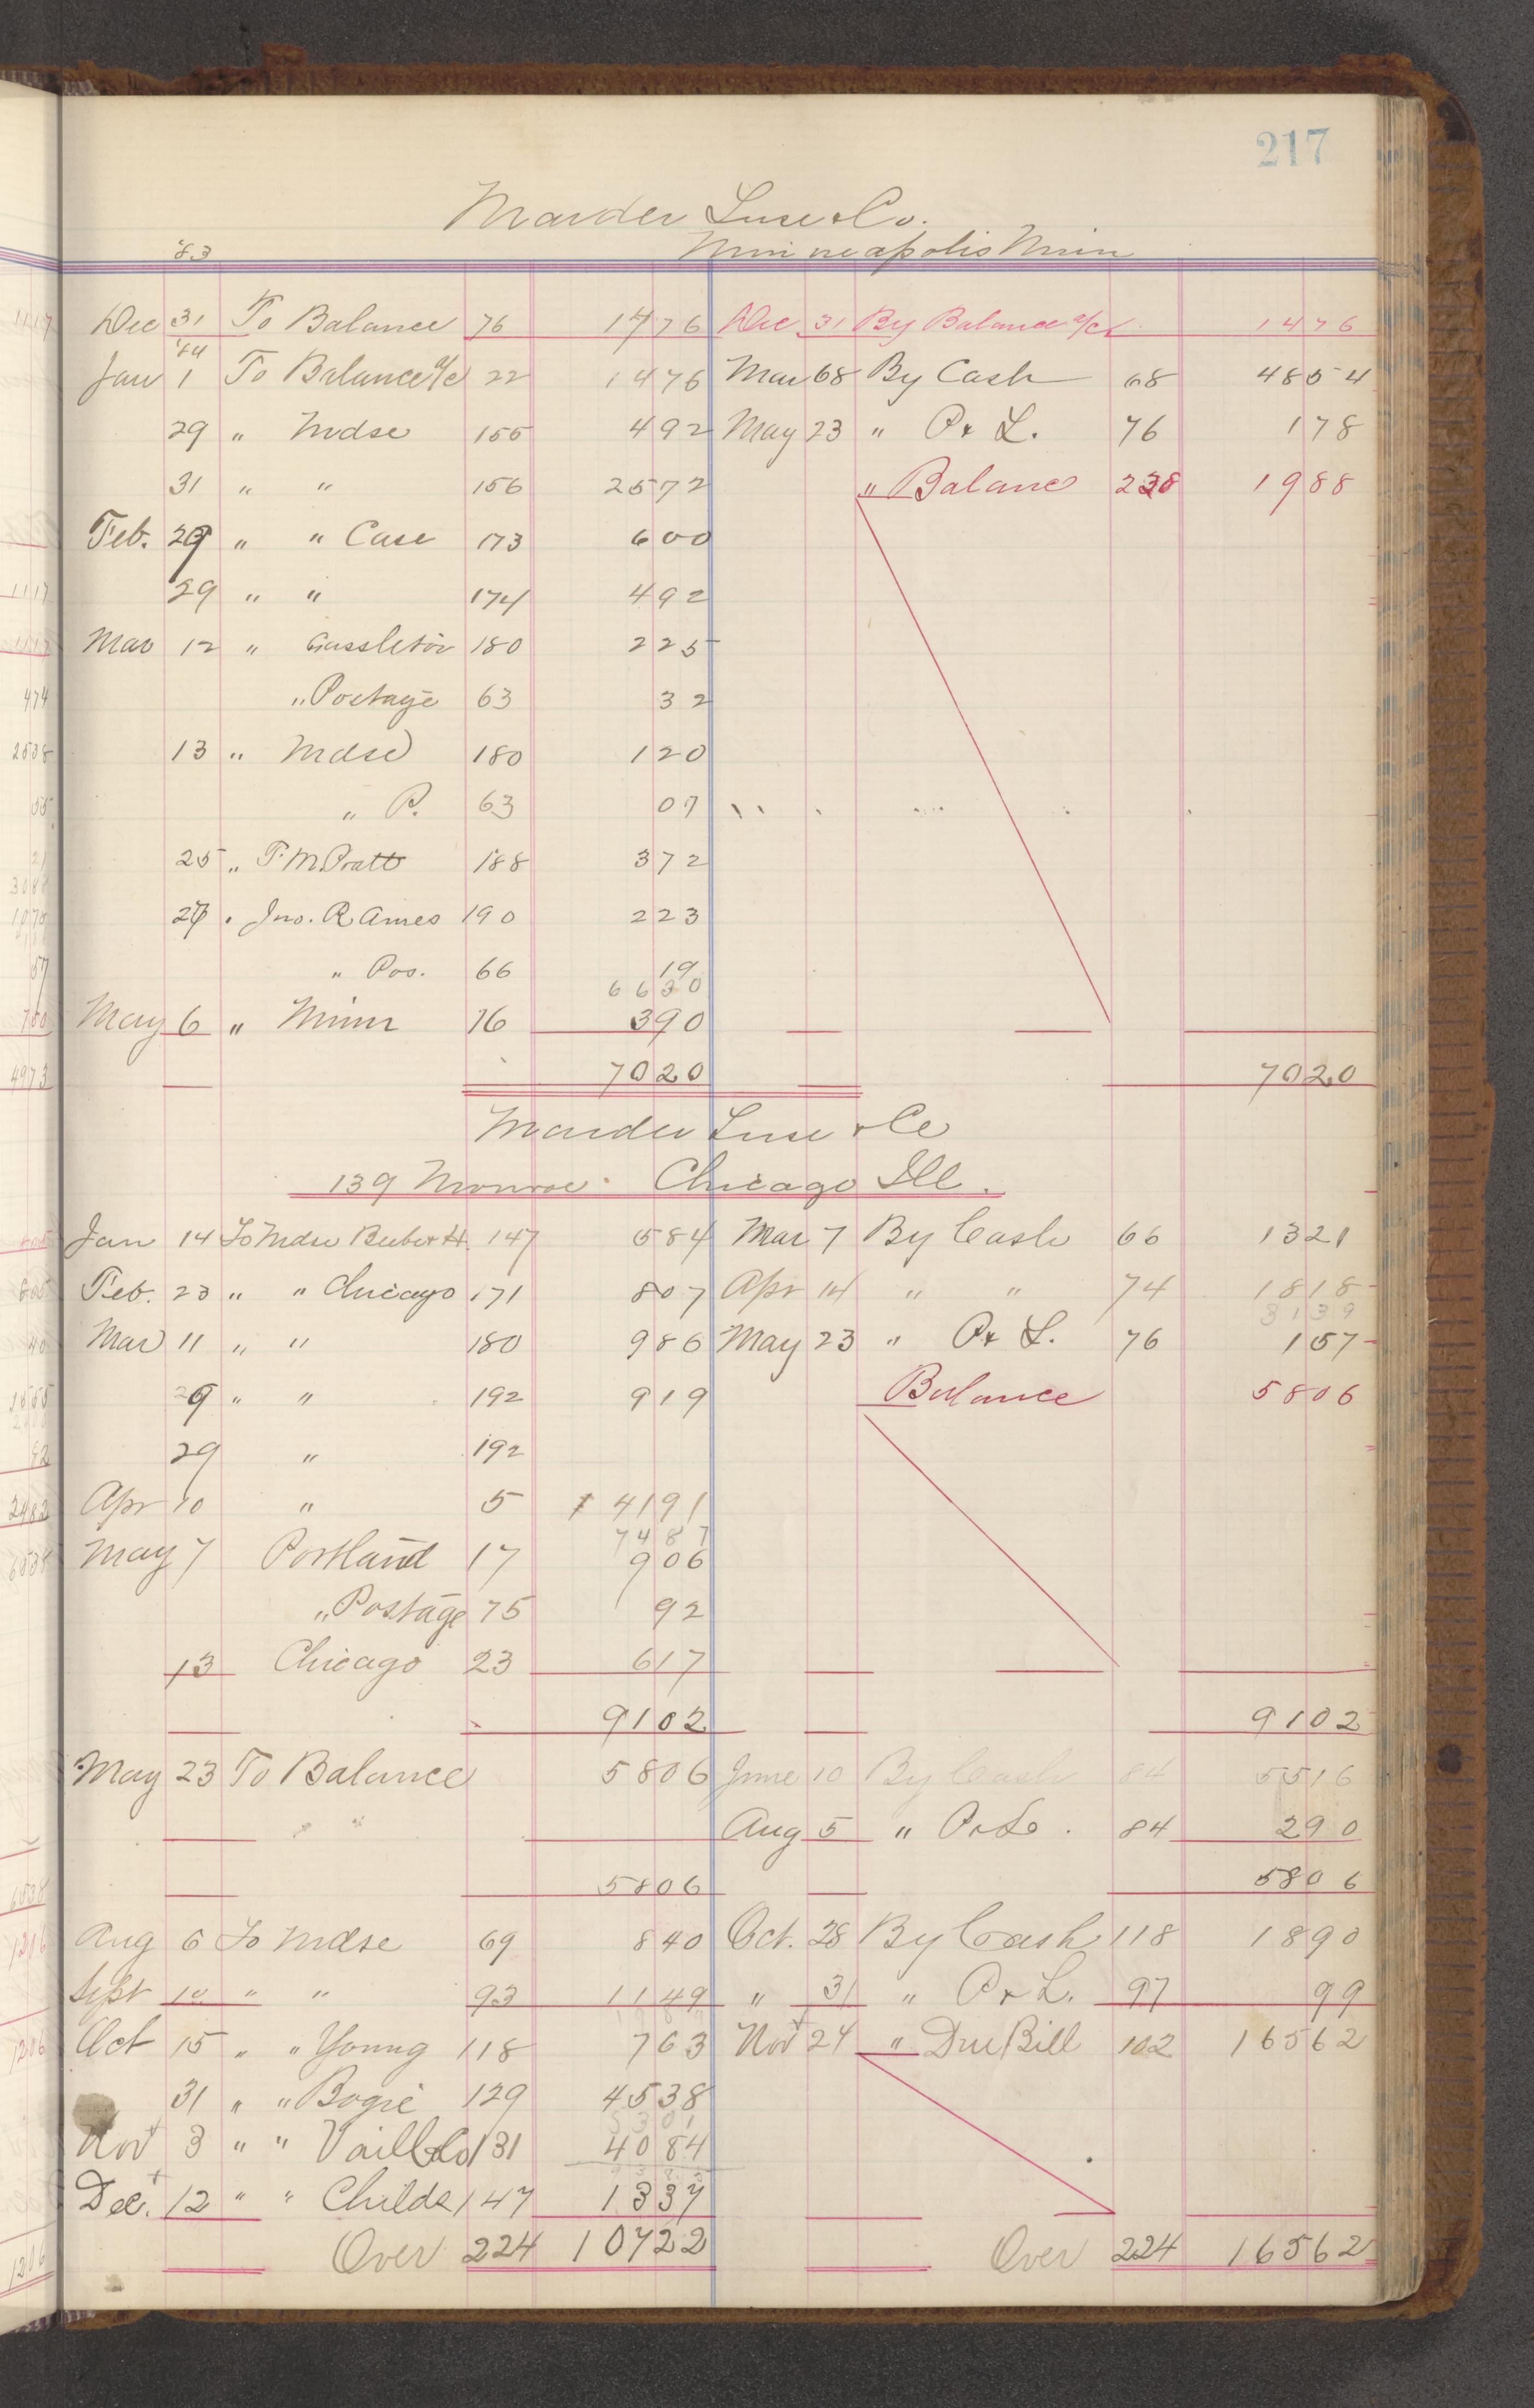 217
Marder Luse & Co.
'83 Minneapolis Minn
Dec 31 To Balance 76 1476 Dec 31 By Balance a/c 1476
'84
Jan 1 To Balance a/c 22 1476 Mar 68 By Cash 68 4854
29 " Mdse 155 492 May 23 " P & L. 76 178
31 " " 156 2572 " Balanc 238 1988
Feb. 29 " " Case 173 600
29 " " 174 492
Mar 12 " 180 225
" Postage 63 32
13 " Mdse 180 120
" P. 63 07
25 " F. M Pratt 188 372
27 " Jno. R Ames 190 223
" Pos. 66 19
6630
May 6 " Minn 16 390
7020 7020
Marder Luse & Co
139 Monroe. Chicago Ill.
Jan 14 To Mdse 147 584 Mar 7 By Cash 66 1321
Feb. 23 " " Chicago 171 807 Apr 14 " " 74 1818
3139
Mar 11 " " 180 986 May 23 " P & L. 76 157
29 " " 192 919 Balance 5806
29 " 192
Apr 10 " 5 4191
7487
May 7 Portland 17 906
" Postage 75 92
13 Chicago 23 617
9102 9102
May 23 To Balance 5806 June 10 By Cash 84 5516
Aug 5 " P & L. 84 290
5806 5806
Aug 6 To Mdse 69 840 Oct. 28 By Cash 118 1890
Sept 10 " " 93 1149 " 31 " P & L. 97 99
Oct 15 " " Young 118 763 Nov 24 " Due Bill 102 16562
31 " " Bogie 129 4538
5301
Nov 3 " " Vaill & Co 131 4084
Dec. 12 " " Childs 147 1337
Over 224 10722 Over 224 16562